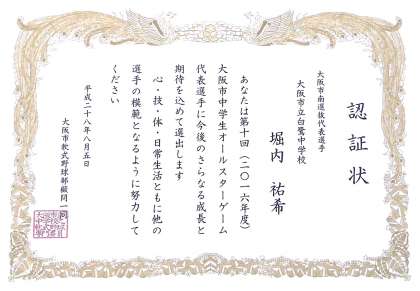 認証状
大阪市南選抜代表選手
大阪市立白鷺中学校
堀内 祐希
あなたは第十回（二〇一六年度）
大阪市中学生オールスターゲーム
代表選手に今後のさらなる成長と
期待を込めて選出します
心・技・体・日常生活ともに他の
選手の模範となるように努力して
ください
平成二十八年八月五日
大阪市軟式野球部顧問一同